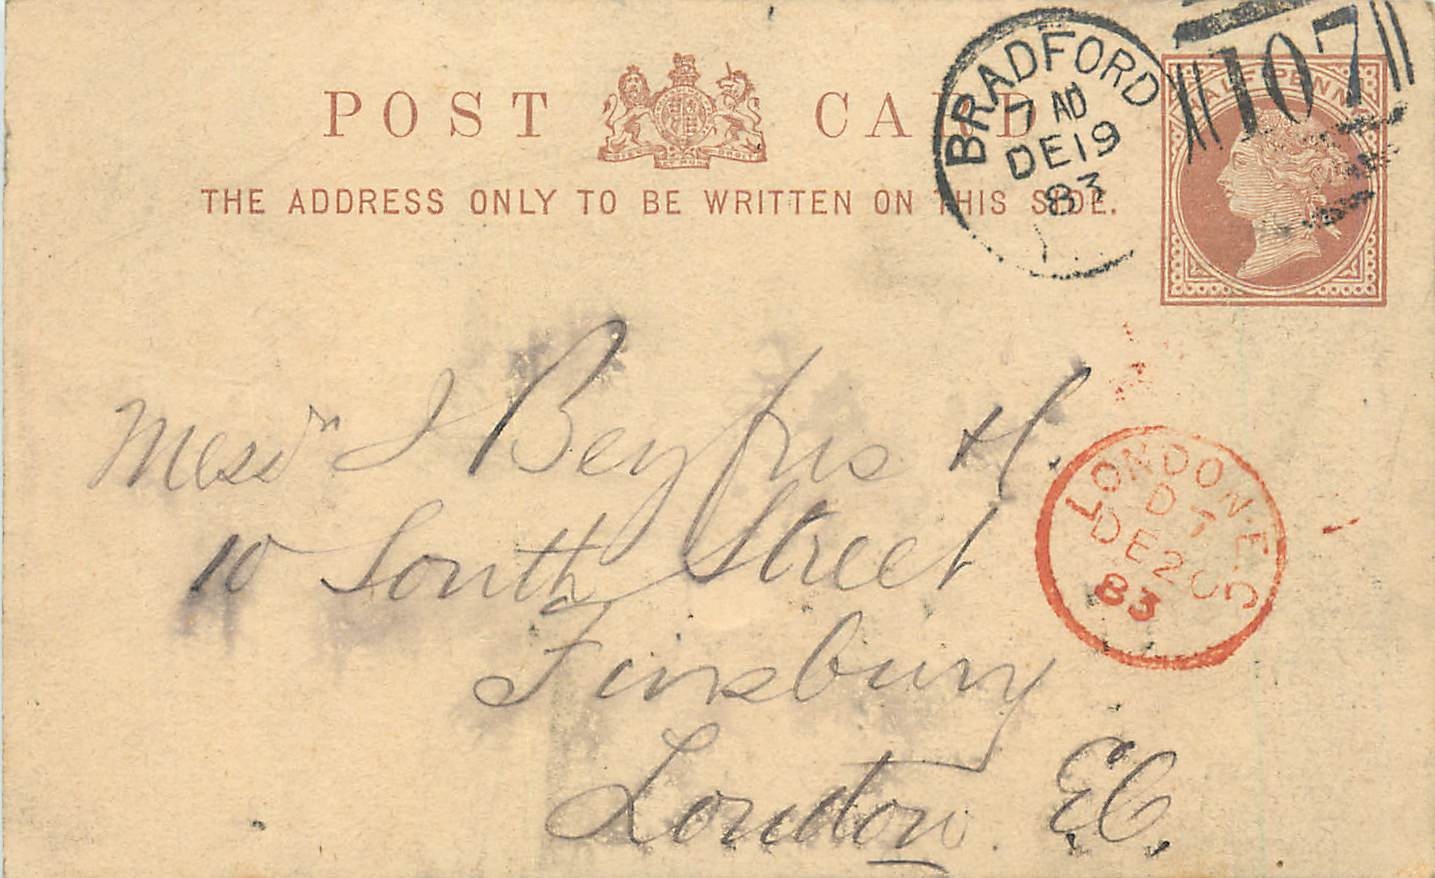 POST CARD
THE ADDRESS ONLY TO BE WRITTEN ON THIS SIDE.
BRADFORD
7 AD
DE 19
83
107
HALFPENNY
DIEU ET MON DROIT
Messrs J Beyfus &
10 South Street
Finsbury
London E.C.
LONDON·E·C
D 7
DE 20
83